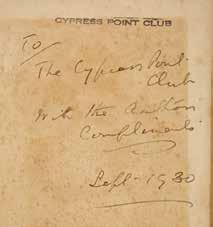 CYPRESS POINT CLUB
To/
The Cypress Point
Club
With the Authors
Compliments
Sept - 1930